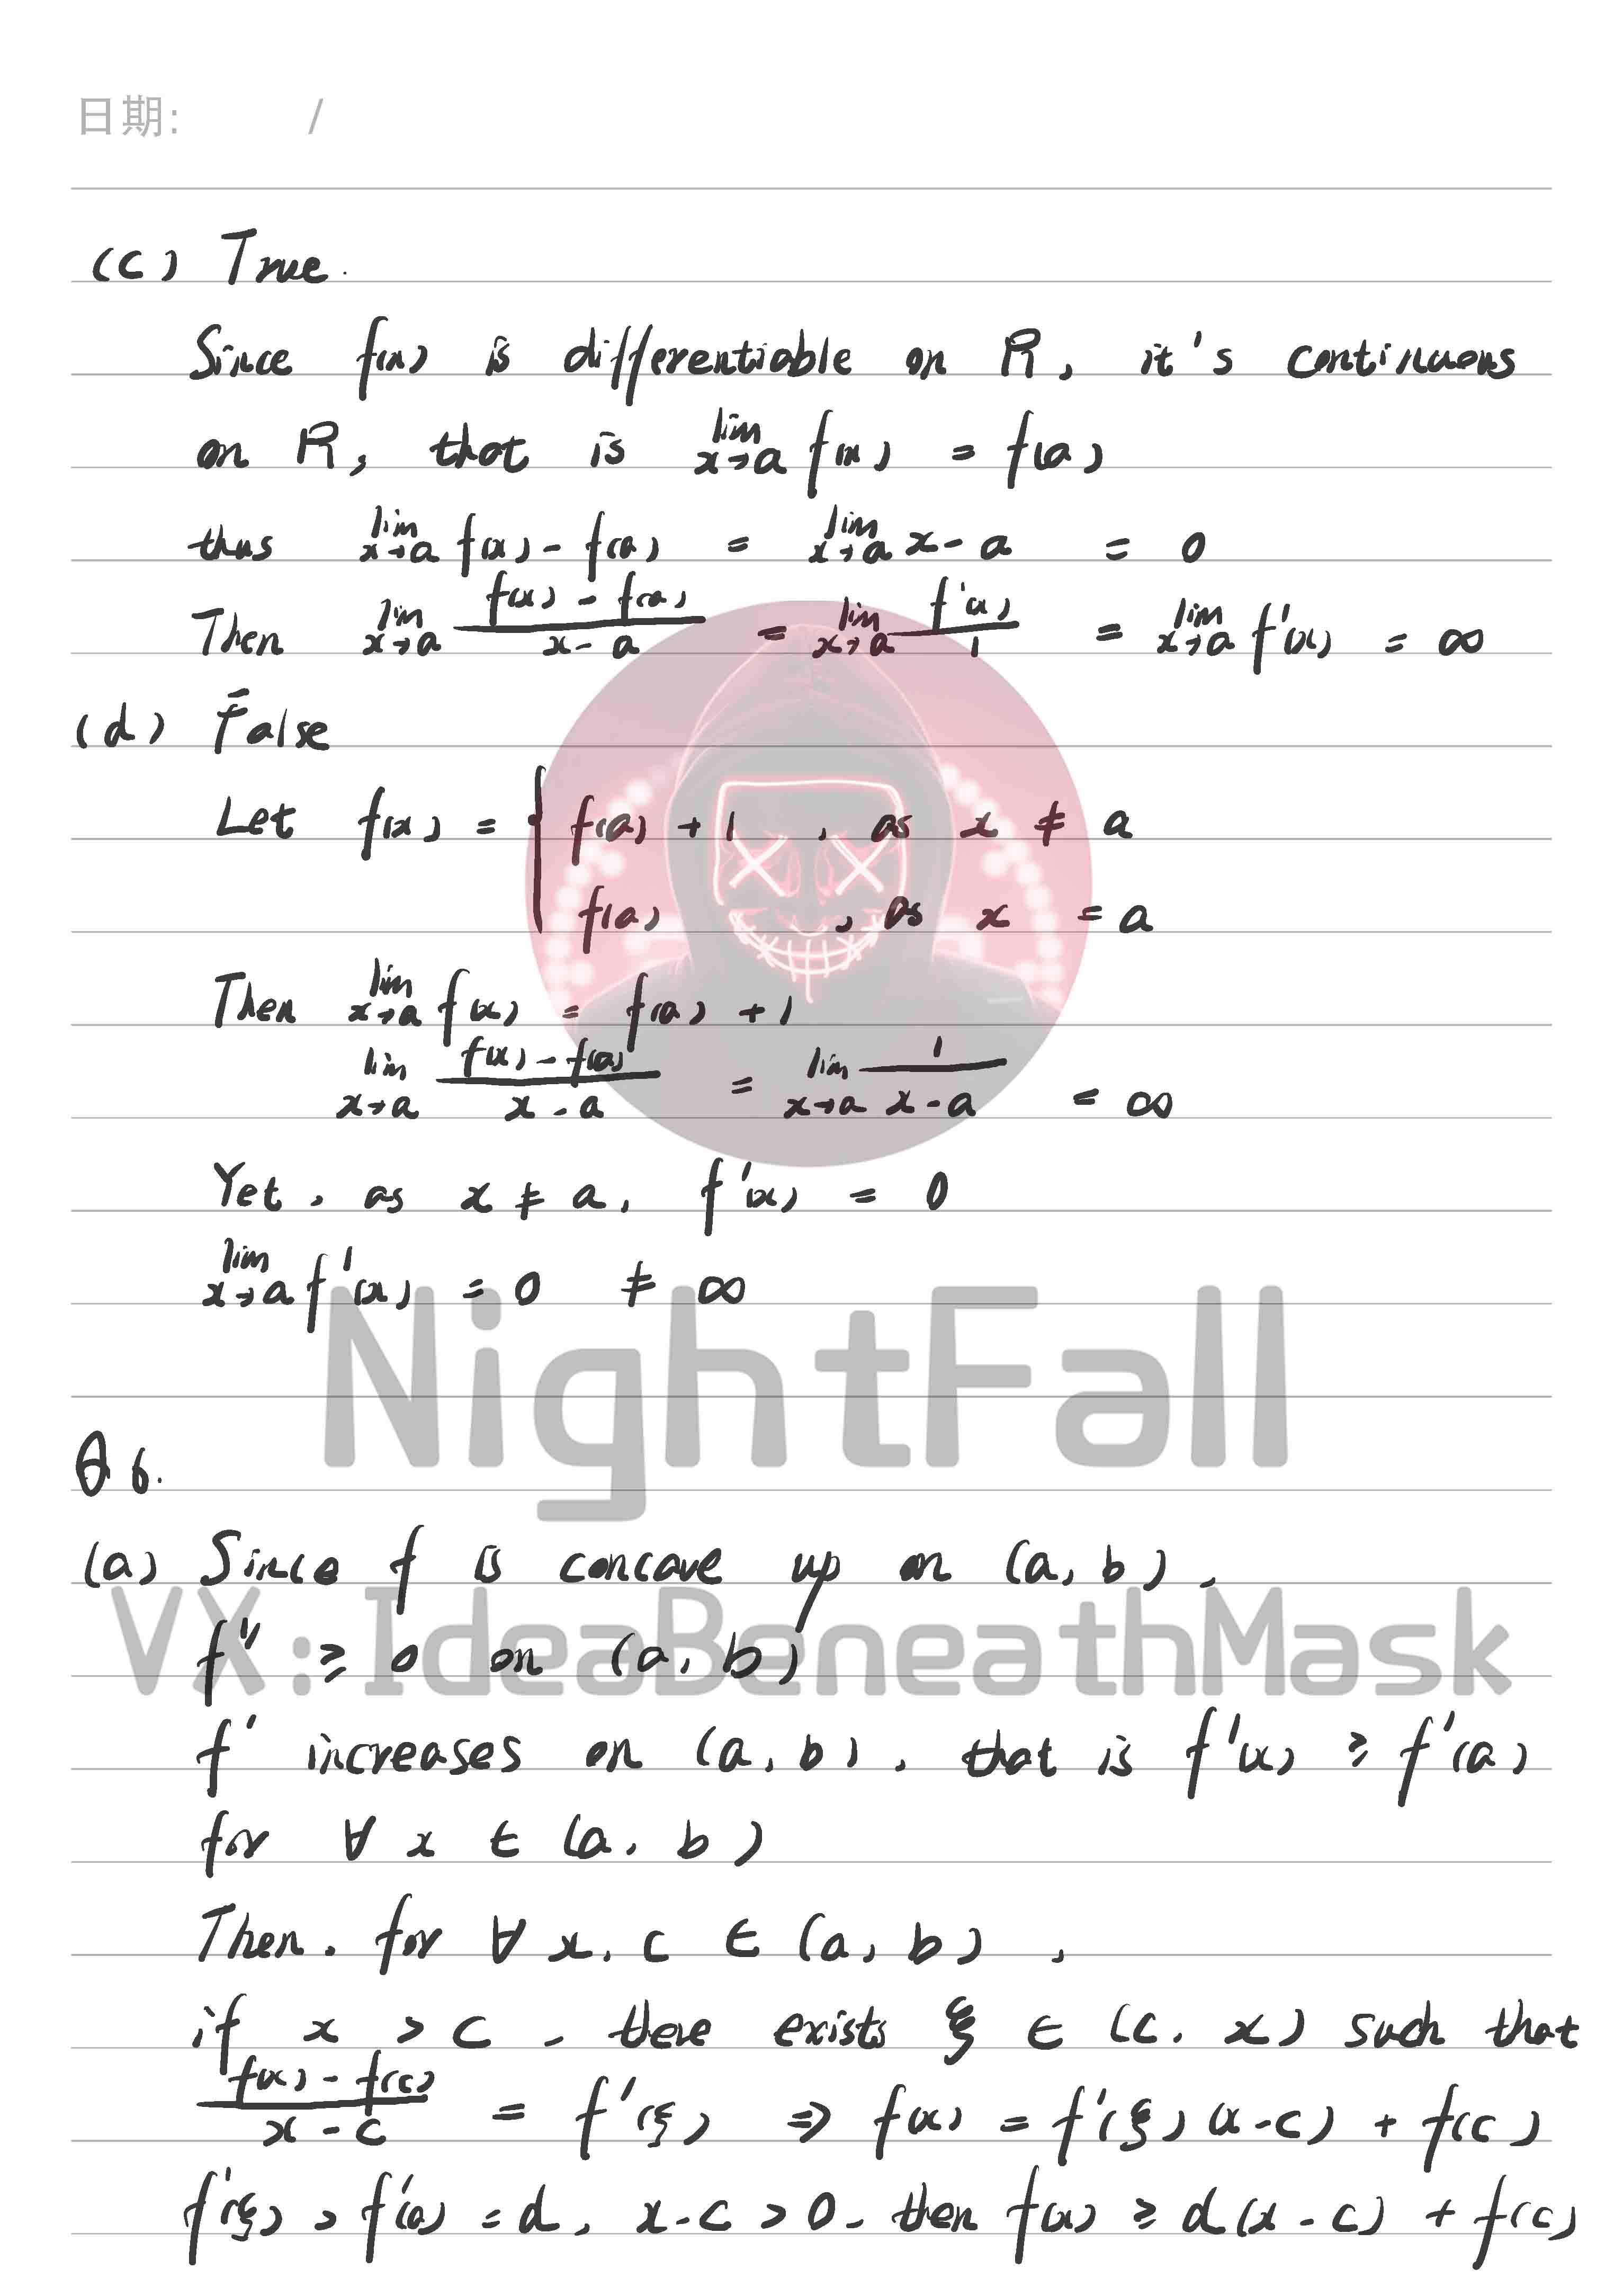 日期: /
(c) True.
Since f(x) is differentiable on R, it's continuous
on R, that is lim x→a f(x) = f(a)
thus lim x→a f(x) - f(a) = lim x→a x - a = 0
Then lim x→a (f(x) - f(a))/(x - a) = lim x→a f'(x)/1 = lim x→a f'(x) = ∞
(d) False
Let f(x) = { f(a) + 1 , as x ≠ a
f(a) , as x = a
Then lim x→a f(x) = f(a) + 1
lim x→a (f(x) - f(a))/(x - a) = lim x→a 1/(x - a) = ∞
Yet, as x ≠ a, f'(x) = 0
lim x→a f'(x) = 0 ≠ ∞
NightFall
Q6.
(a) Since f is concave up on (a, b),
VX:IdeaBeneathMask
f'' ≥ 0 on (a, b)
f' increases on (a, b), that is f'(x) ≥ f'(a)
for ∀ x ∈ (a, b)
Then, for ∀ x, c ∈ (a, b),
if x > c, there exists ξ ∈ (c, x) such that
(f(x) - f(c))/(x - c) = f'(ξ) ⇒ f(x) = f'(ξ)(x-c) + f(c)
f'(ξ) > f'(a) = d, x-c > 0, then f(x) ≥ d(x-c) + f(c)